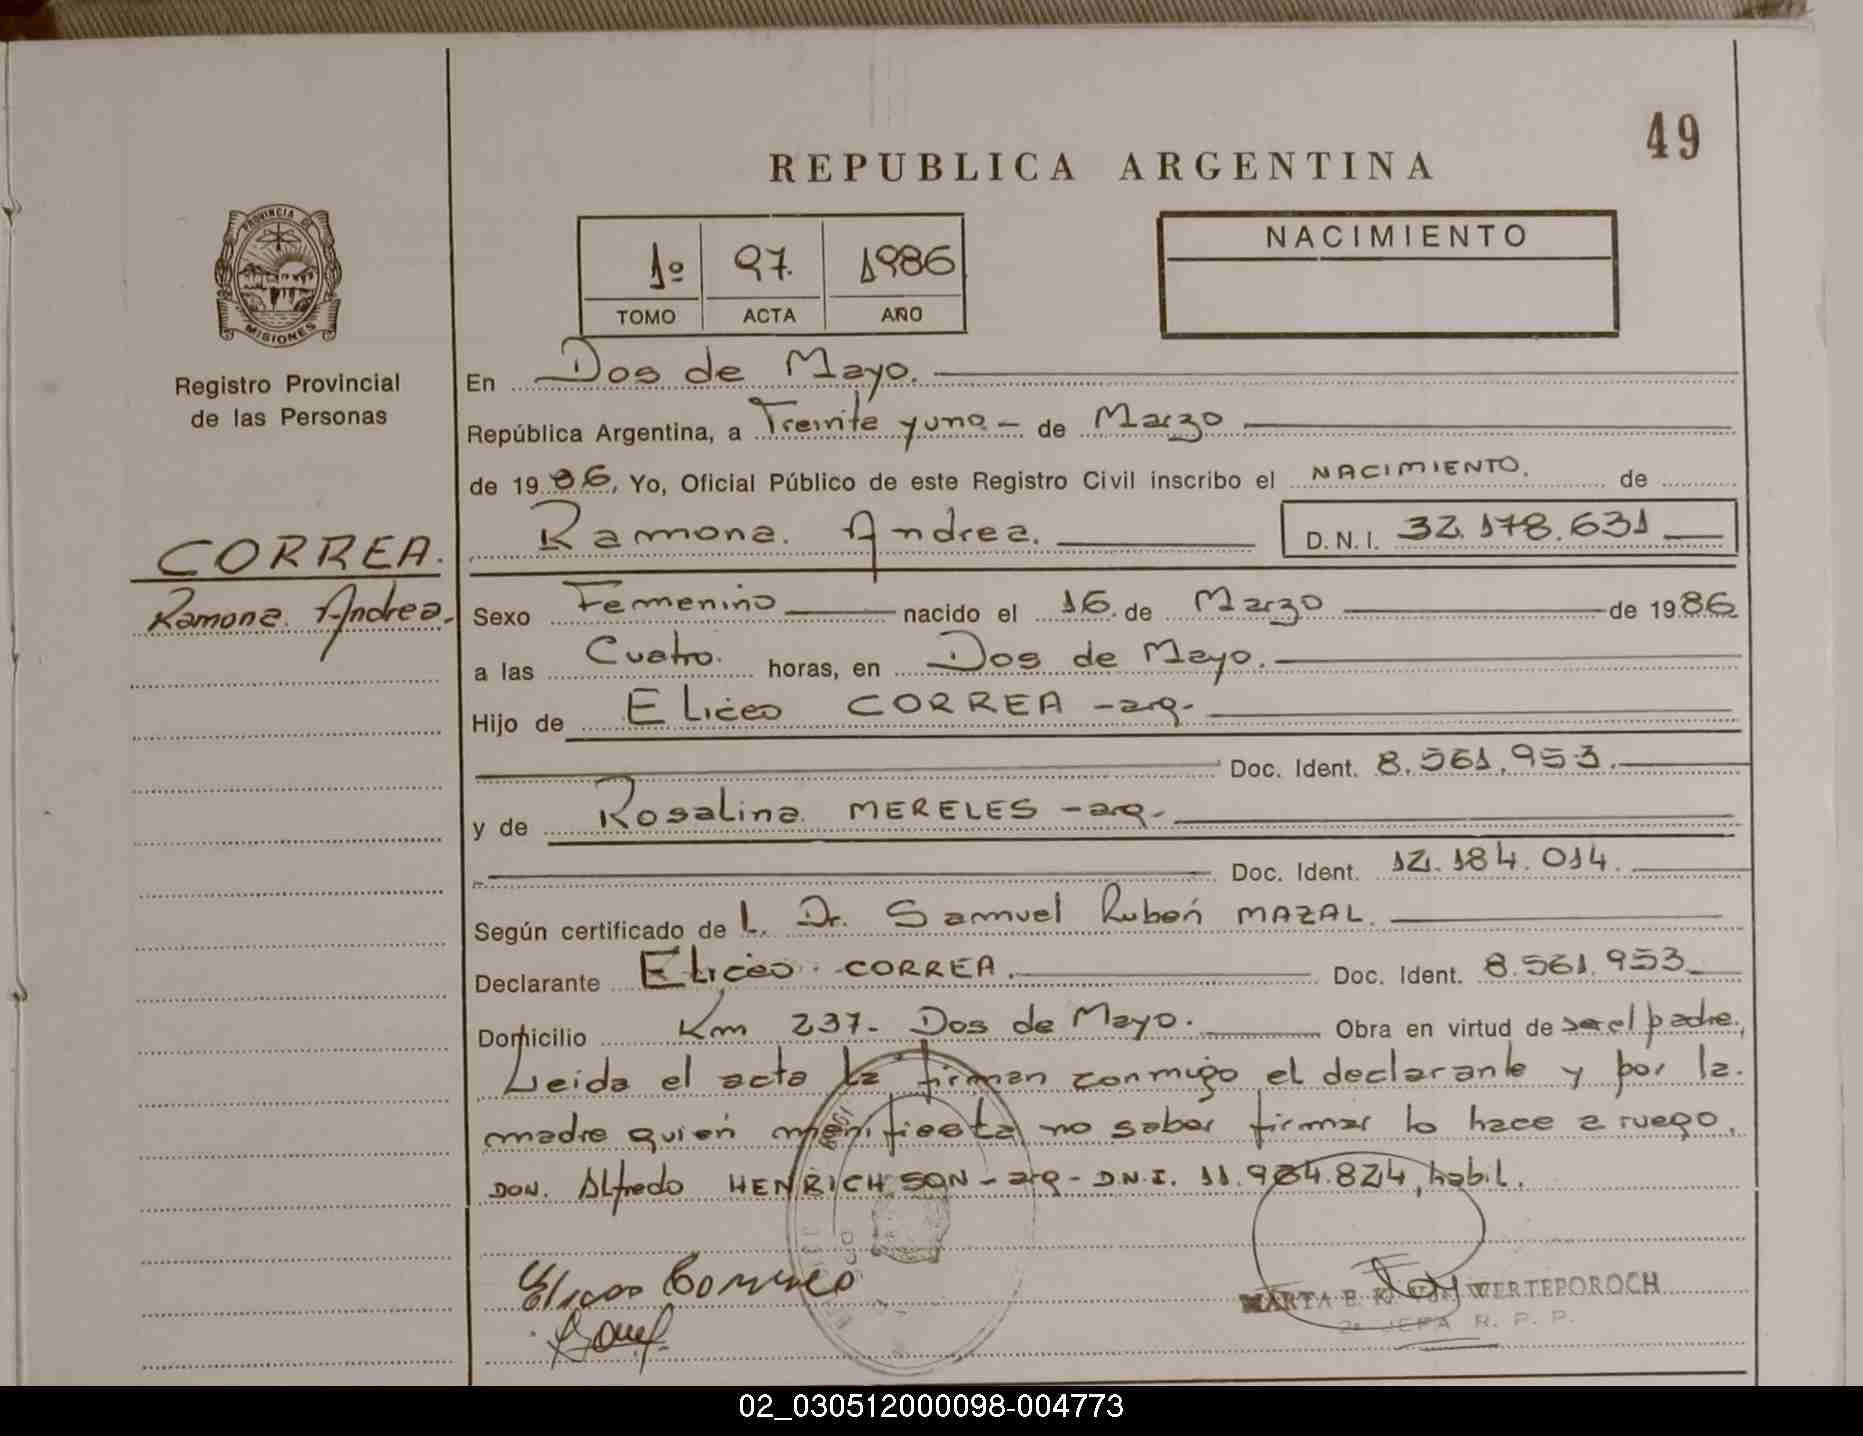 49
REPUBLICA ARGENTINA
PROVINCIA DE
MISIONES
Registro Provincial
de las Personas
1º 97. 1986
TOMO ACTA AÑO
NACIMIENTO
En Dos de Mayo.
República Argentina, a Treinta y uno - de Marzo
de 1986, Yo, Oficial Público de este Registro Civil inscribo el NACIMIENTO. de
Ramona. Andrea. D.N.I. 32.178.631
CORREA.
Ramona. Andrea.
Sexo Femenino nacido el 16 de Marzo de 1986
a las Cuatro. horas, en Dos de Mayo.
Hijo de Eliceo CORREA -arg-
Doc. Ident. 8.561.953.
y de Rosalina MERELES -arg-
Doc. Ident. 12.184.014.
Según certificado de L. Dr. Samuel Rubén MAZAL.
Declarante Eliceo CORREA. Doc. Ident. 8.561.953
Domicilio Km 237- Dos de Mayo. Obra en virtud de ser el padre,
Leida el acta la firman conmigo el declarante y por la
madre quien manifiesta no saber firmar lo hace a ruego,
DON. Alfredo HENRICHSON - arg - D.N.I. 11.984.824, habil.
Eliceo Correa
MARTA E. K. VON WERTEPOROCH
2a JEFA R. P. P.
02_030512000098-004773